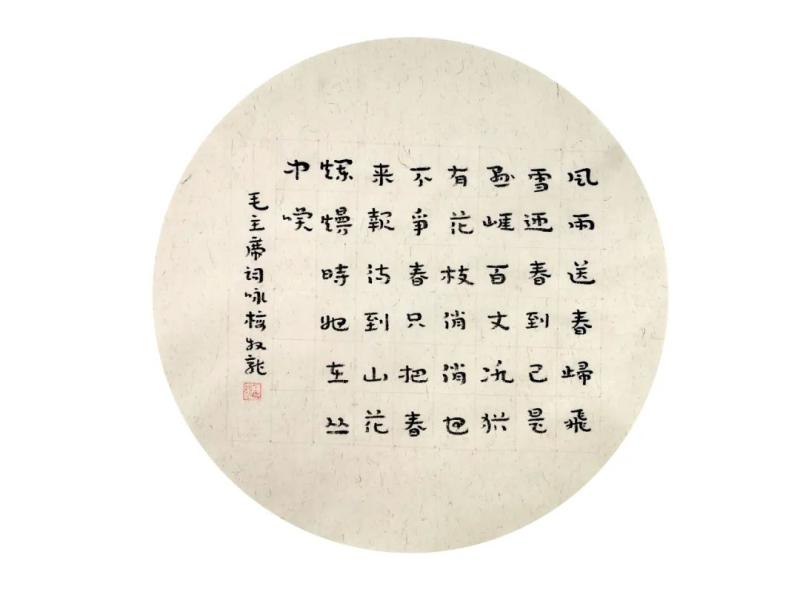 风雨送春歸飛
雪迎春到已是
悬崖百丈冰犹
有花枝俏俏也
不爭春只把春
来報待到山花
爛熳時她在丛
中咲
毛主席词咏梅牧龍